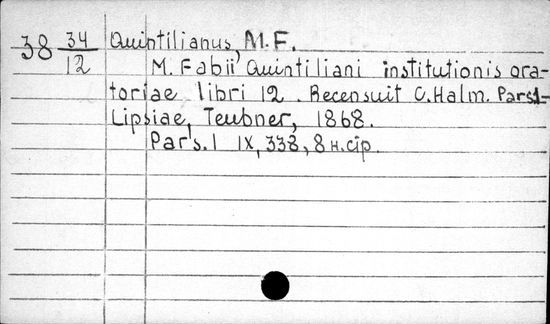 38 34/12 Quintilianus, M.F.
M. Fabii Quintiliani institutionis ora-
toriae libri 12. Recensuit C. Halm. Pars 1-
Lipsiae, Teubner, 1868.
Pars. 1 IX, 338, 8 н.стр.